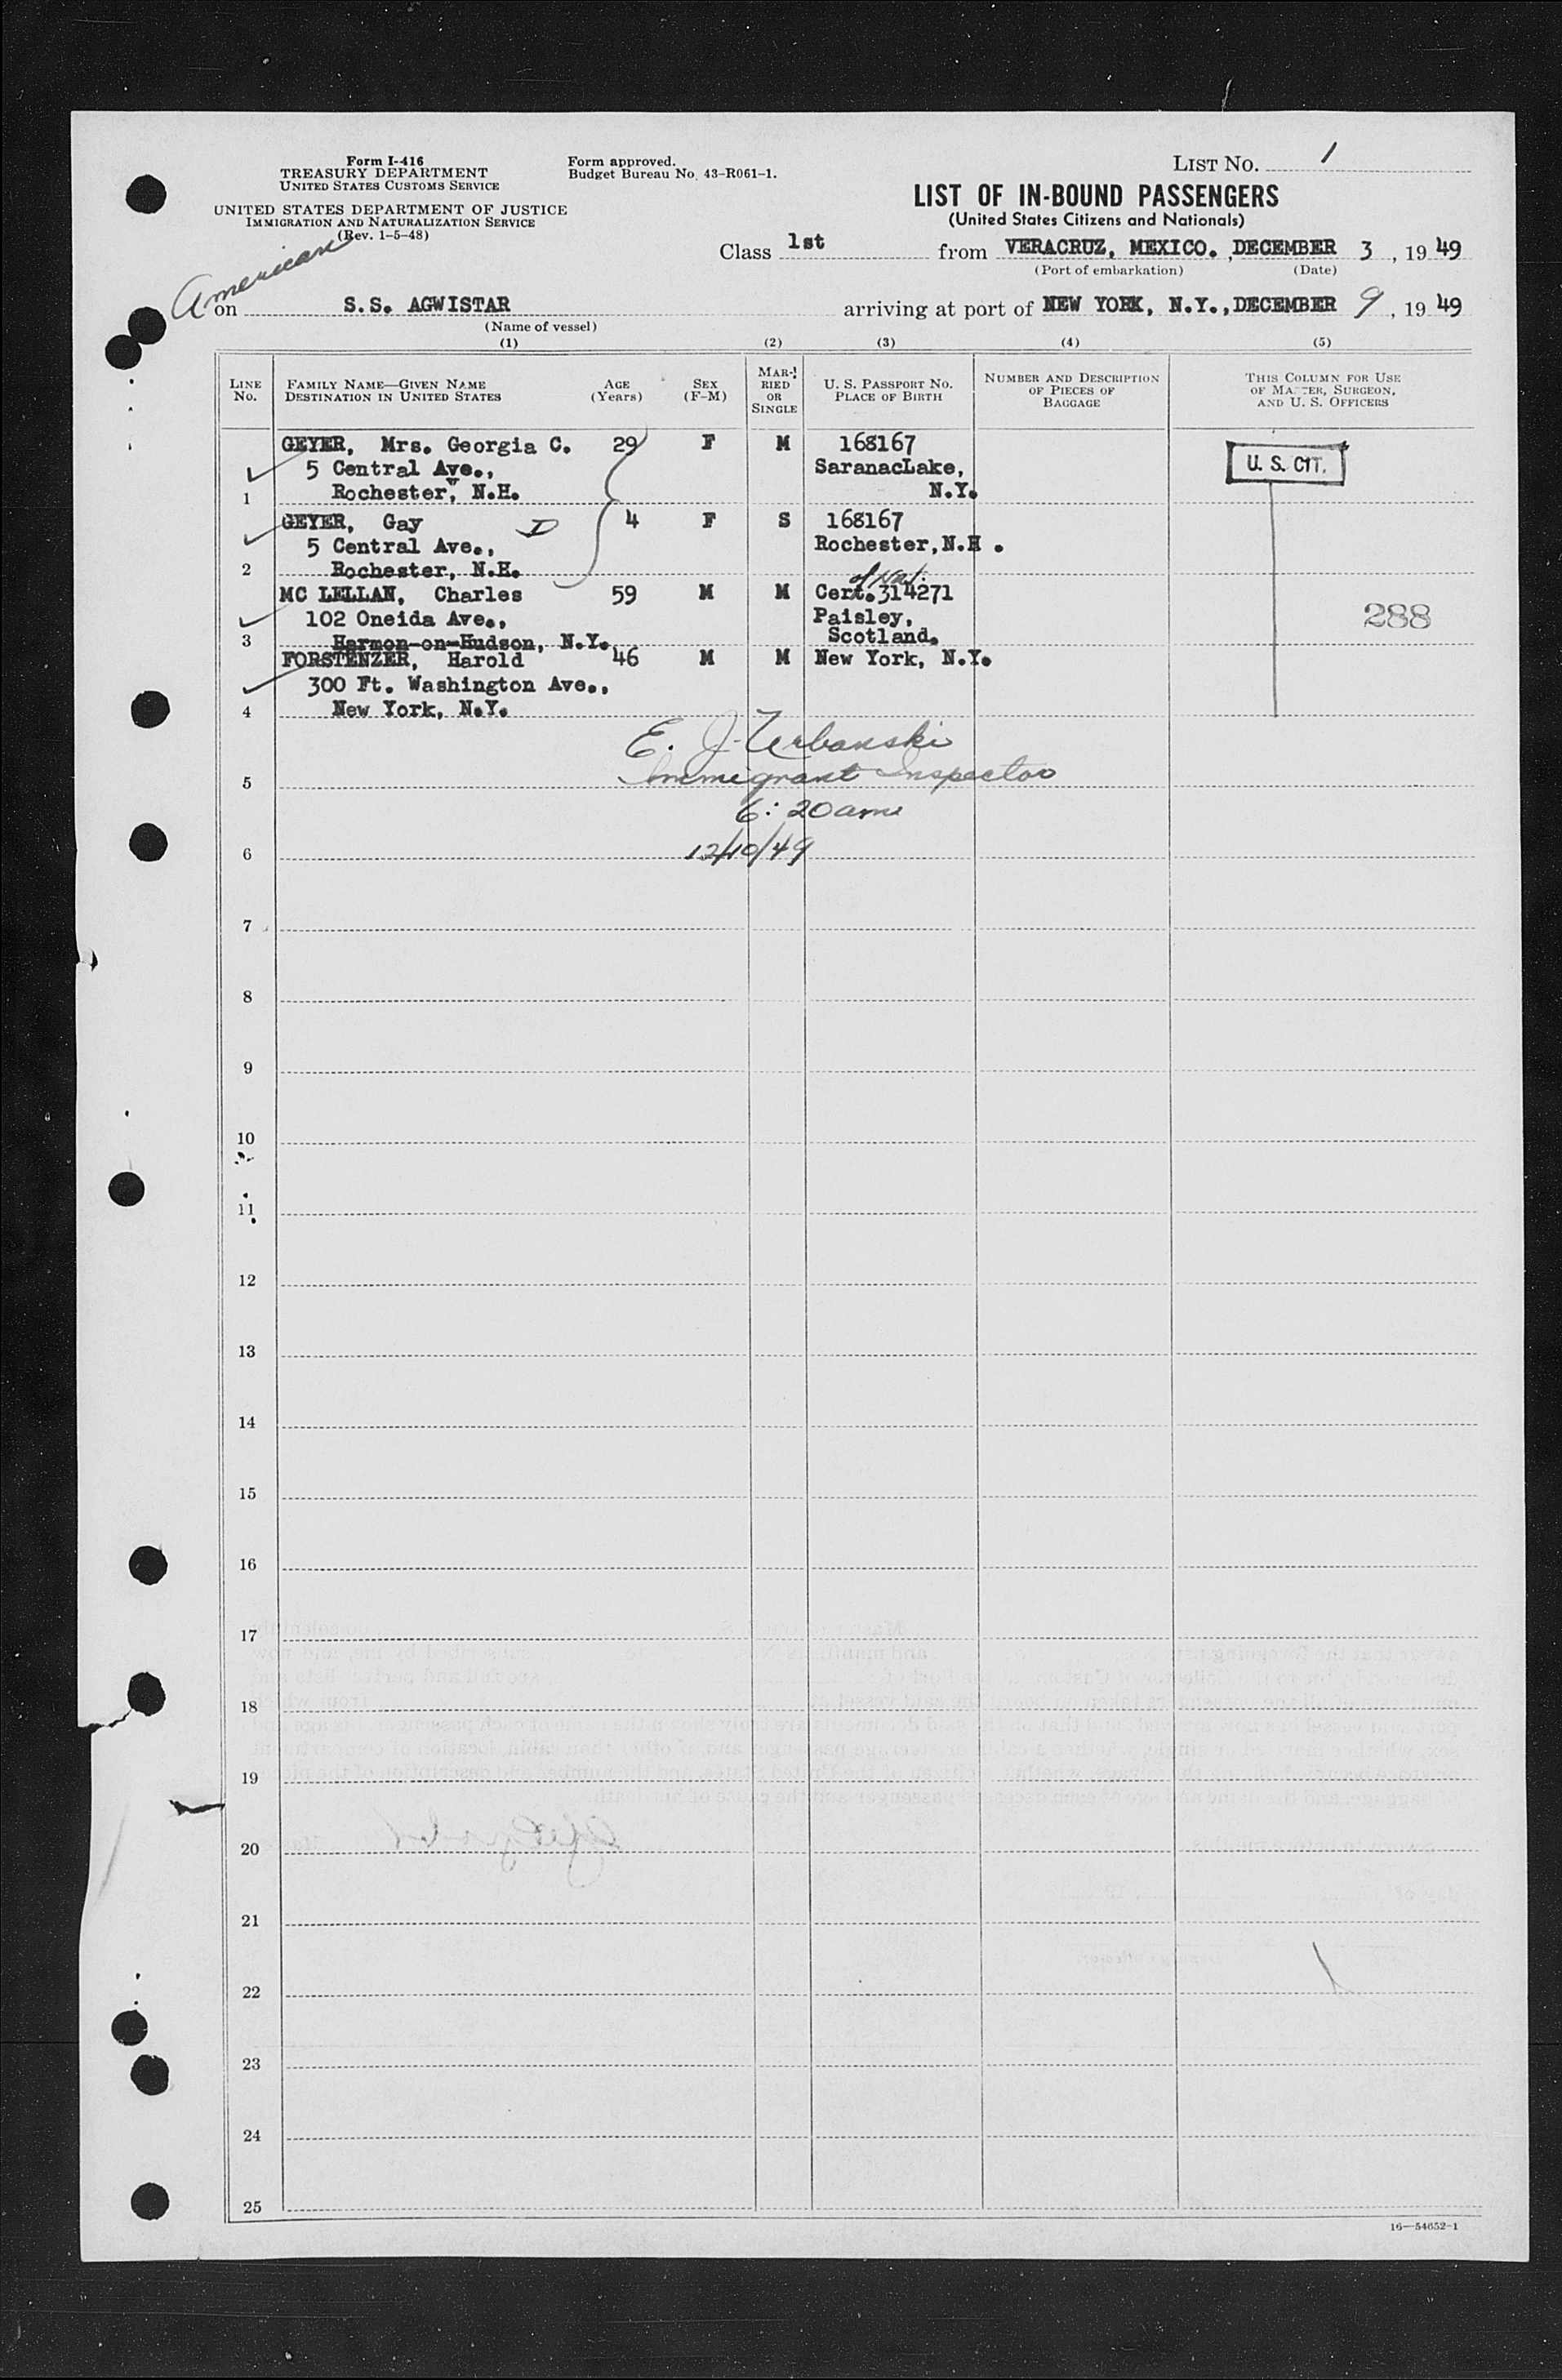 Form I-416
TREASURY DEPARTMENT
UNITED STATES CUSTOMS SERVICE
UNITED STATES DEPARTMENT OF JUSTICE
IMMIGRATION AND NATURALIZATION SERVICE
(Rev. 1-5-48)
Form approved.
Budget Bureau No. 43-R061-1.
LIST NO. 1
LIST OF IN-BOUND PASSENGERS
(United States Citizens and Nationals)
Class 1st from VERACRUZ, MEXICO., DECEMBER 3, 1949
(Port of embarkation) (Date)
American
on S.S. AGWISTAR arriving at port of NEW YORK, N.Y., DECEMBER 9, 1949
(Name of vessel)
(1) (2) (3) (4) (5)
LINE NO.
FAMILY NAME—GIVEN NAME
DESTINATION IN UNITED STATES
AGE (Years)
SEX (F-M)
MARRIED OR SINGLE
U. S. PASSPORT NO.
PLACE OF BIRTH
NUMBER AND DESCRIPTION
OF PIECES OF
BAGGAGE
THIS COLUMN FOR USE
OF MASTER, SURGEON,
AND U. S. OFFICERS
GEYER, Mrs. Georgia C. 29 F M 168167
5 Central Ave., SaranacLake, U. S. CIT.
1 Rochester, N.H. N.Y.
GEYER, Gay D 4 F S 168167
5 Central Ave., Rochester, N.H.
2 Rochester, N.H.
of Nat.
MC LELLAN, Charles 59 M M Cert. 314271
102 Oneida Ave., Paisley, 288
3 Harmon-on-Hudson, N.Y. Scotland.
FORSTENZER, Harold 46 M M New York, N.Y.
300 Ft. Washington Ave.,
4 New York, N.Y.
E. J. Urbanski
5 Immigrant Inspector
6:20 am
6 12/10/49
7
8
9
10
11
12
13
14
15
16
17
18
19
20
21
22
23
24
25
16—54652-1